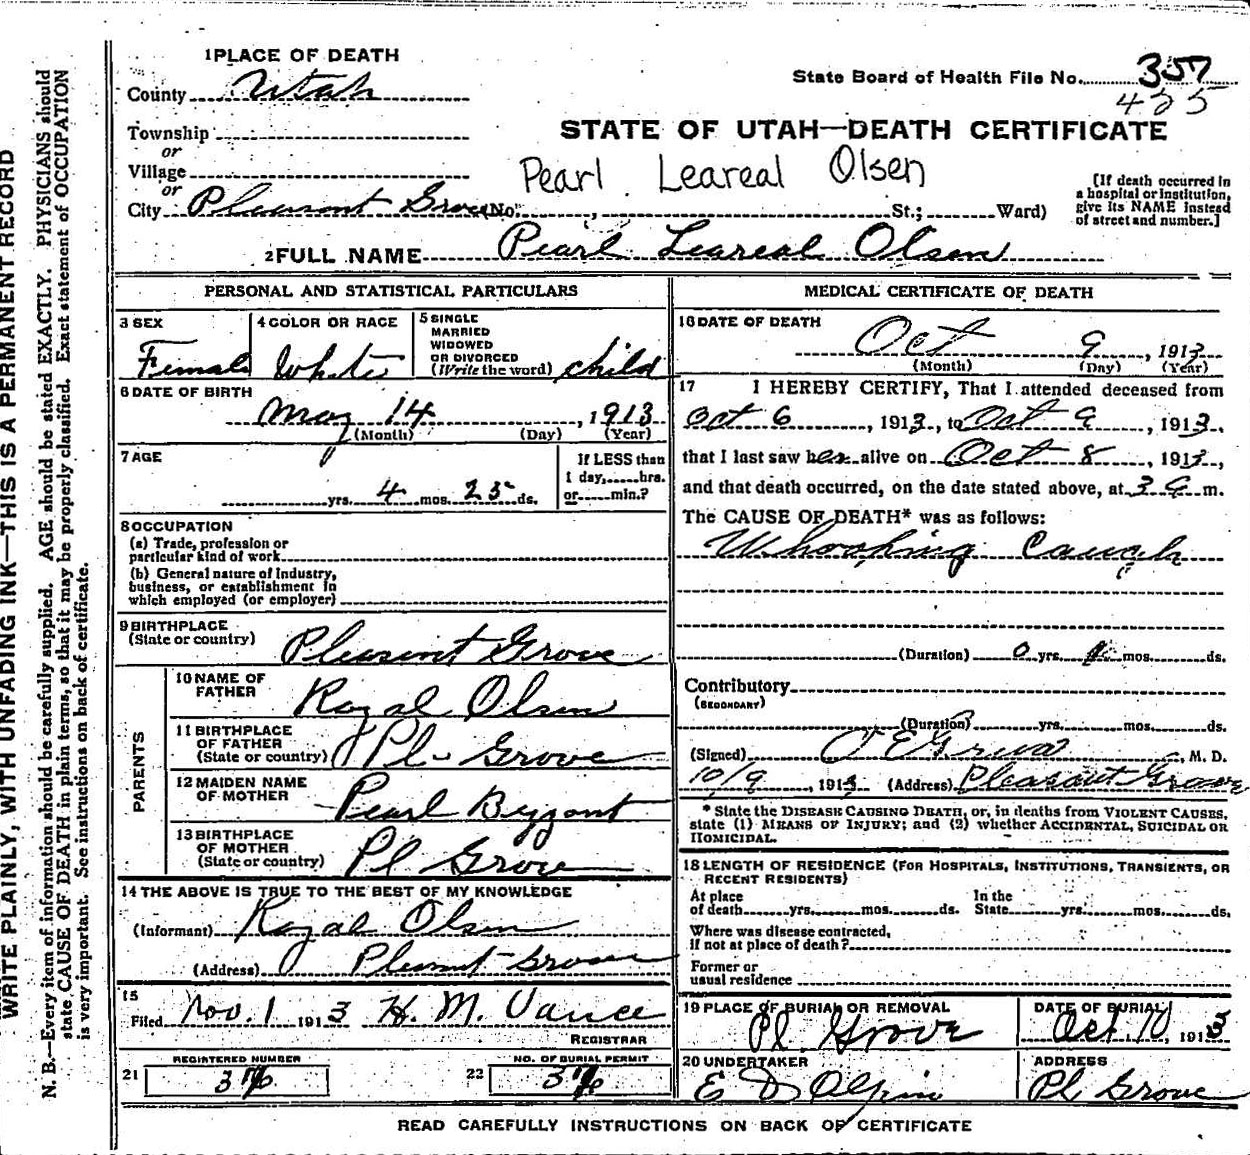 WRITE PLAINLY, WITH UNFADING INK—THIS IS A PERMANENT RECORD
N. B.—Every item of information should be carefully supplied. AGE should be stated EXACTLY. PHYSICIANS should
state CAUSE OF DEATH in plain terms, so that it may be properly classified. Exact statement of OCCUPATION
is very important. See instructions on back of certificate.
1 PLACE OF DEATH
State Board of Health File No. 357
425
County Utah
STATE OF UTAH—DEATH CERTIFICATE
Township
or
Village
Pearl Leareal Olsen
or
City Pleasant Grove No. , St.; Ward)
[If death occurred in
a hospital or institution,
give its NAME instead
of street and number.]
2 FULL NAME Pearl Leareal Olsen
PERSONAL AND STATISTICAL PARTICULARS
3 SEX Female
4 COLOR OR RACE White
5 SINGLE
MARRIED
WIDOWED
OR DIVORCED
(Write the word) child
6 DATE OF BIRTH
May 14, 1913
(Month) (Day) (Year)
7 AGE
yrs. 4 mos. 25 ds.
If LESS than
1 day, hrs.
or min.?
8 OCCUPATION
(a) Trade, profession or
particular kind of work
(b) General nature of industry,
business, or establishment in
which employed (or employer)
9 BIRTHPLACE
(State or country) Pleasant Grove
PARENTS
10 NAME OF
FATHER Royal Olsen
11 BIRTHPLACE
OF FATHER
(State or country) Pl- Grove
12 MAIDEN NAME
OF MOTHER Pearl Bezzant
13 BIRTHPLACE
OF MOTHER
(State or country) Pl Grove
14 THE ABOVE IS TRUE TO THE BEST OF MY KNOWLEDGE
(Informant) Royal Olsen
(Address) Pleasant Grove
15
Filed Nov. 1 1913 H. M. Vance
REGISTRAR
REGISTERED NUMBER
21
NO. OF BURIAL PERMIT
22
MEDICAL CERTIFICATE OF DEATH
16 DATE OF DEATH
Oct 9, 1913
(Month) (Day) (Year)
17 I HEREBY CERTIFY, That I attended deceased from
Oct 6, 1913, to Oct 9, 1913,
that I last saw her alive on Oct 8, 1913,
and that death occurred, on the date stated above, at 3 a m.
The CAUSE OF DEATH* was as follows:
Whooping Cough
(Duration) 0 yrs. mos. ds.
Contributory
(SECONDARY)
(Duration) yrs. mos. ds.
(Signed) , M. D.
10/9, 1913 (Address) Pleasant Grove
* State the DISEASE CAUSING DEATH, or, in deaths from VIOLENT CAUSES,
state (1) MEANS OF INJURY; and (2) whether ACCIDENTAL, SUICIDAL OR
HOMICIDAL.
18 LENGTH OF RESIDENCE (FOR HOSPITALS, INSTITUTIONS, TRANSIENTS, OR
RECENT RESIDENTS)
At place
of death yrs. mos. ds.
In the
State yrs. mos. ds.
Where was disease contracted,
if not at place of death?
Former or
usual residence
19 PLACE OF BURIAL OR REMOVAL
Pl. Grove
DATE OF BURIAL
Oct. 10, 1913
20 UNDERTAKER
E D Olpin
ADDRESS
Pl Grove
READ CAREFULLY INSTRUCTIONS ON BACK OF CERTIFICATE